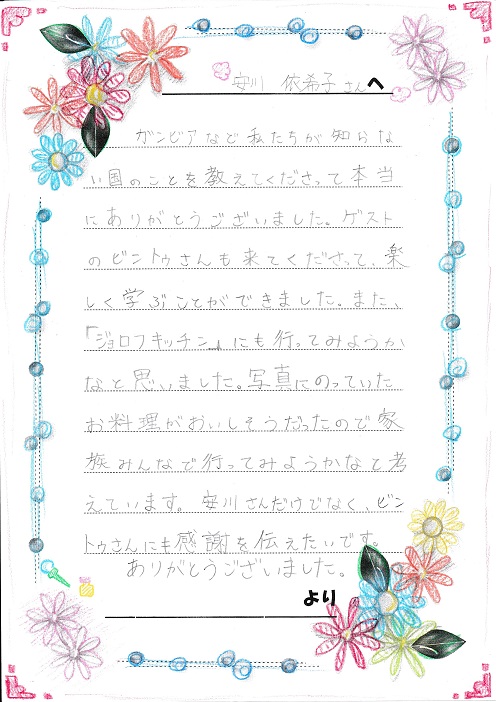 安川 依希子さんへ
ガンビアなど私たちが知らな
い国のことを教えてくださって本当
にありがとうございました。ゲスト
のビントゥさんも来てくださって、楽
しく学ぶことができました。また、
「ジョロフキッチン」にも行ってみようか
なと思いました。写真にのっていた
お料理がおいしそうだったので家
族みんなで行ってみようかなと考
えています。安川さんだけでなく、ビン
トゥさんにも感謝を伝えたいです。
ありがとうございました。
より